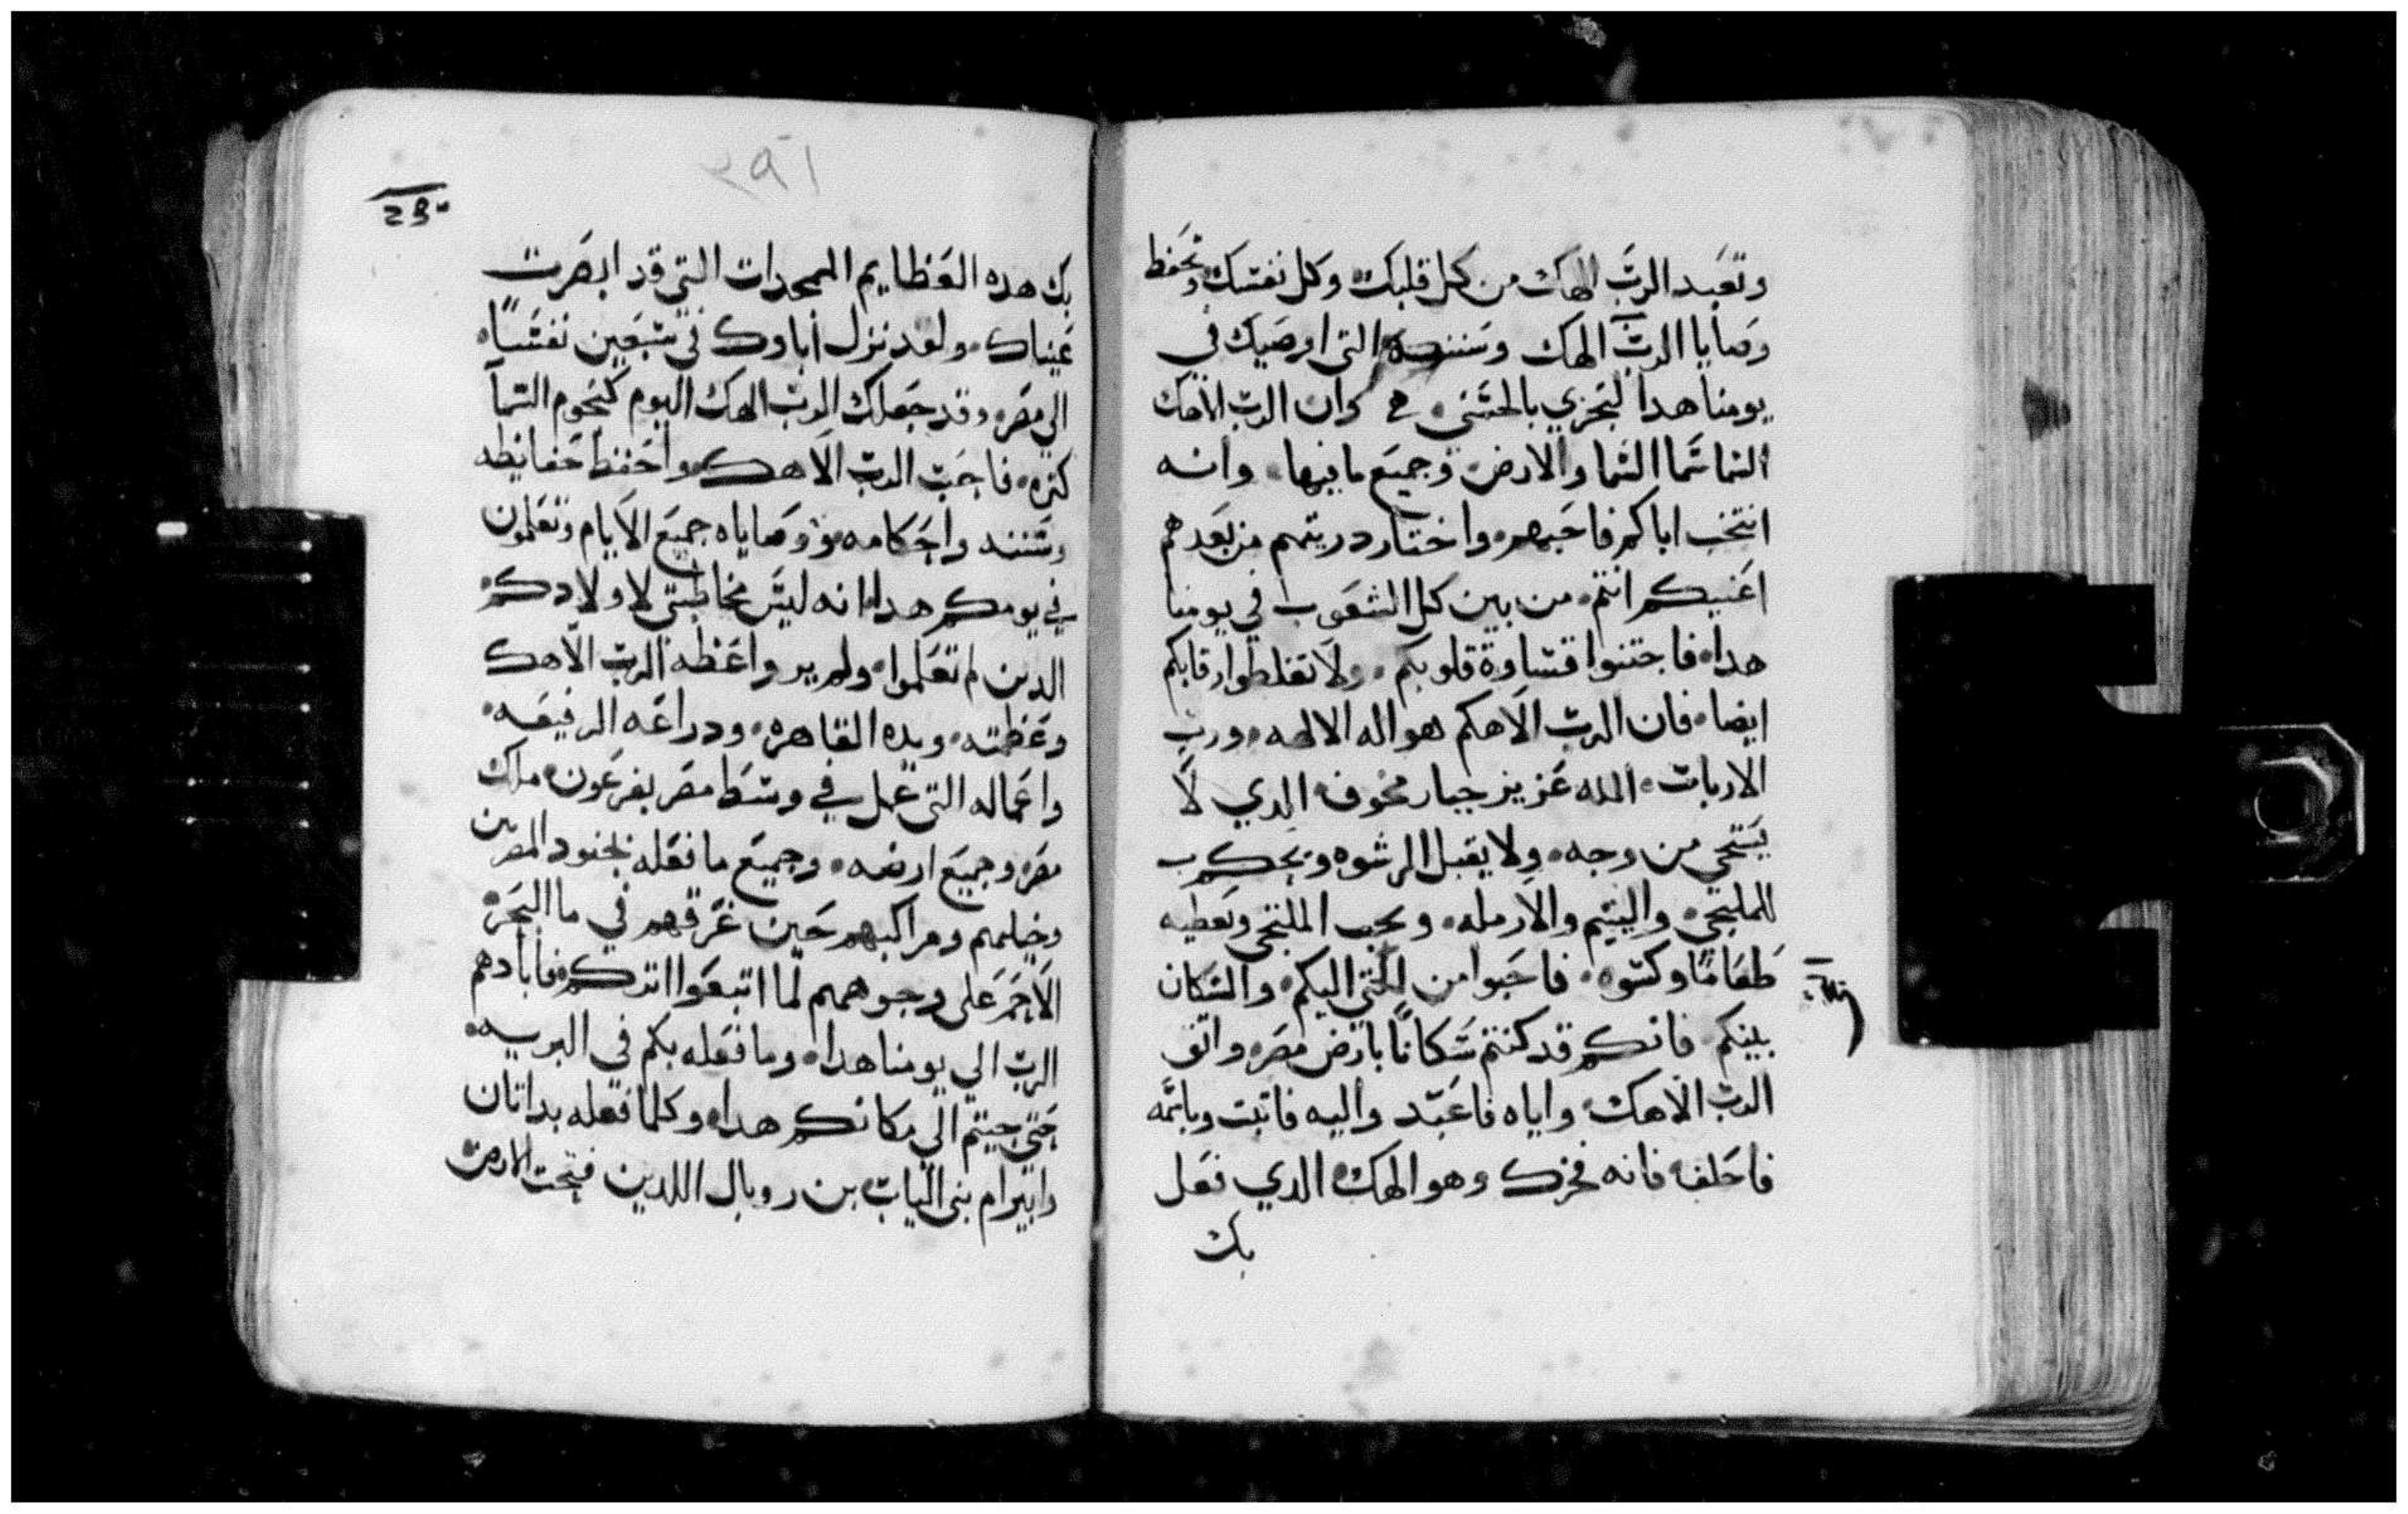 وتعَبد الربَّ الهك من كل قلبك وكل نفسك وتحَفظ
وصَايا الربّ الهك وسَننه التى اوصَيك في
يومنا هدا لتجزي بالحسَني وان الربّ الاهك
السَما سَما السَما والارض وجميعَ ما فيها وانه
انتخب اباكم فاحَبهم واختار دريتهم من بعَدهم
اعَنيكم انتم من بين كل الشعَوب في يومنا
هدا فاجتنبوا قسَاوة قلوبكم ولا تغلطوا رقابكم
ايضا فان الربّ الاهكم هو اله الالهه ورب
الاربابَ الله عَزيز جبار مخوف الدي لا
يسَتحي من وجه ولا يقبل الرشوه ويحكم ب
للملتجي واليتيم والارمله ويحب الملتجي ويعَطيه
طعَامًا وكسَوه فاحَبوا من التجي اليكم والسَكان
بينكم فانكم قد كنتم سَكانًا بارض مصَر واتق
الربّ الاهك واياه فاعَبَد واليه فاتبَت وباسَمه
فاحَلف فانه فخرك وهو الهك الدي فعَل
بك
٣٩١
بك هده العَظايم الممجدات التي قد ابصَرت
عَيناك ولقد نزل اباوك في سَبعَين نفسًَا
الي مصَر وقد جعَلك الربّ الهك اليوم كنجوم السَمآ
كتره فاحَبّ الربّ الاهك واحَفظ حَفايظه
وسَننه واحَكامه ووصَاياه جميعَ الايام وتعَلمون
في يومكم هدا انه ليسَ مخاطبتي لاولادكم
الدين لم تعَلموا ولم يروا عَظة الربّ الاهك
وعَظمته ويده القاهره ودراعَه الرفيعَه
واعَماله التي عَمل في وسَط مصَر بفرعَون ملك
مصَر وجميعَ ارضه وجميعَ ما فعَله بجنود المصريين
وخيلهم ومراكبهم حَين غرقهم في ما البحَر
الاحَمر عَلي وجوههم لما اتبعَوا اتركم فابادهم
الربّ الي يومنا هدا وما فعَله بكم في البريه
حَتي جيتم الي مكانكم هدا وكلما فعَله بداتان
وابيرام بني الياب بن روبال اللدين فتحت الارض